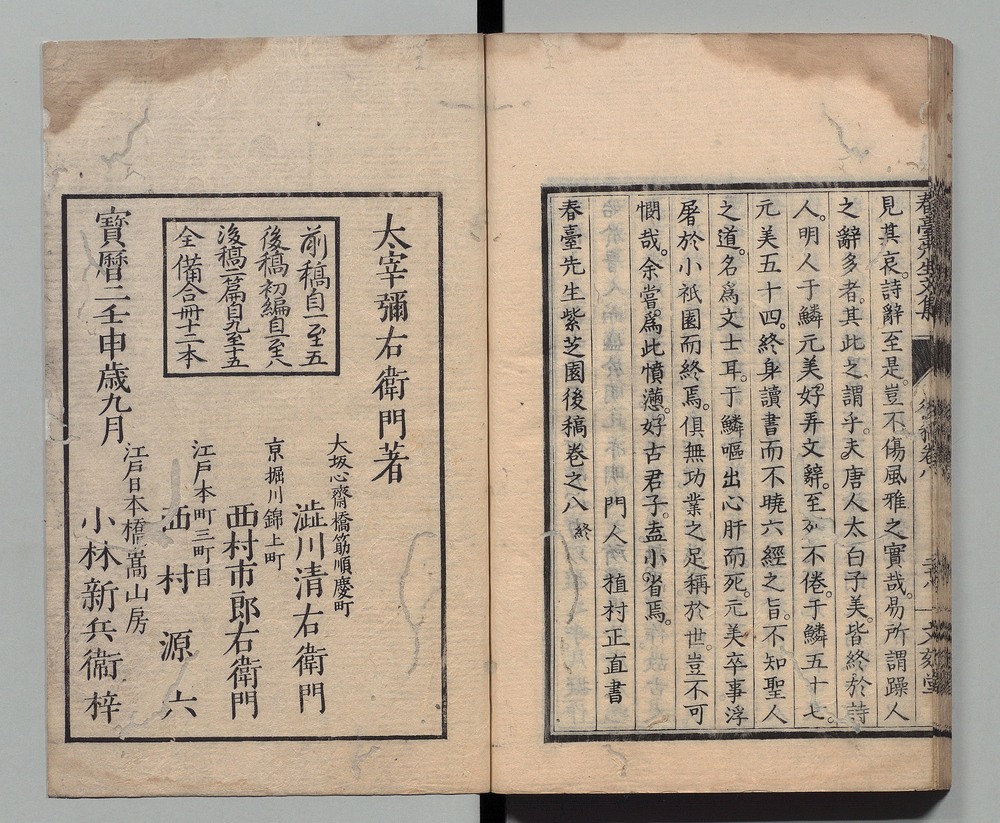 見其哀。詩辭至是。豈不傷風雅之實哉。易所謂躁人
之辭多者。其此之謂乎。夫唐人太白子美。皆終於詩
人。明人于鱗元美。好弄文辭。至死不倦。于鱗五十七。
元美五十四。終身讀書而不曉六經之旨。不知聖人
之道。名爲文士耳。于鱗嘔出心肝而死。元美卒事浮
屠於小祇園而終焉。俱無功業之足稱於世。豈不可
憫哉。余嘗爲此憤懣。好古君子。盍小省焉。
門人 植村正直書
春臺先生紫芝園後稿卷之八 終
太宰彌右衛門著
前稿自一至五
後稿初編自一至八
後稿二篇自九至十五
全備合冊十二本
大坂心齋橋筋順慶町
澁川清右衛門
京堀川錦上町
西村市郎右衛門
江戸本町三町目
西村源六
江戸日本橋嵩山房
小林新兵衞梓
寶曆二壬申歳九月